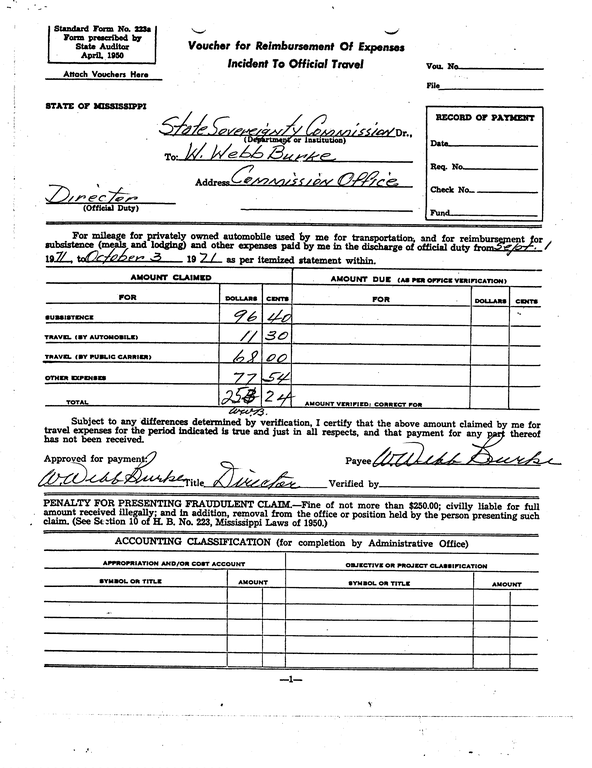 Standard Form No. 223a
Form prescribed by
State Auditor
April, 1950
Attach Vouchers Here
Voucher for Reimbursement Of Expenses
Incident To Official Travel
Vou. No.
File
STATE OF MISSISSIPPI
State Sovereignty Commission Dr.,
(Department or Institution)
To: W. Webb Burke
Address Commission Office
Director
(Official Duty)
RECORD OF PAYMENT
Date
Req. No.
Check No.
Fund
For mileage for privately owned automobile used by me for transportation, and for reimbursement for
subsistence (meals and lodging) and other expenses paid by me in the discharge of official duty from Sept. 1
1971, to October 3 1971 as per itemized statement within.
AMOUNT CLAIMED AMOUNT DUE (AS PER OFFICE VERIFICATION)
FOR DOLLARS CENTS FOR DOLLARS CENTS
SUBSISTENCE 96 40
TRAVEL (BY AUTOMOBILE) 11 30
TRAVEL (BY PUBLIC CARRIER) 68 00
OTHER EXPENSES 77 54
TOTAL 253 24 AMOUNT VERIFIED: CORRECT FOR
WWB.
Subject to any differences determined by verification, I certify that the above amount claimed by me for
travel expenses for the period indicated is true and just in all respects, and that payment for any part thereof
has not been received.
Approved for payment: Payee W Webb Burke
W Webb Burke Title Director Verified by
PENALTY FOR PRESENTING FRAUDULENT CLAIM.—Fine of not more than $250.00; civilly liable for full
amount received illegally; and in addition, removal from the office or position held by the person presenting such
claim. (See Section 10 of H. B. No. 223, Mississippi Laws of 1950.)
ACCOUNTING CLASSIFICATION (for completion by Administrative Office)
APPROPRIATION AND/OR COST ACCOUNT OBJECTIVE OR PROJECT CLASSIFICATION
SYMBOL OR TITLE AMOUNT SYMBOL OR TITLE AMOUNT
—1—